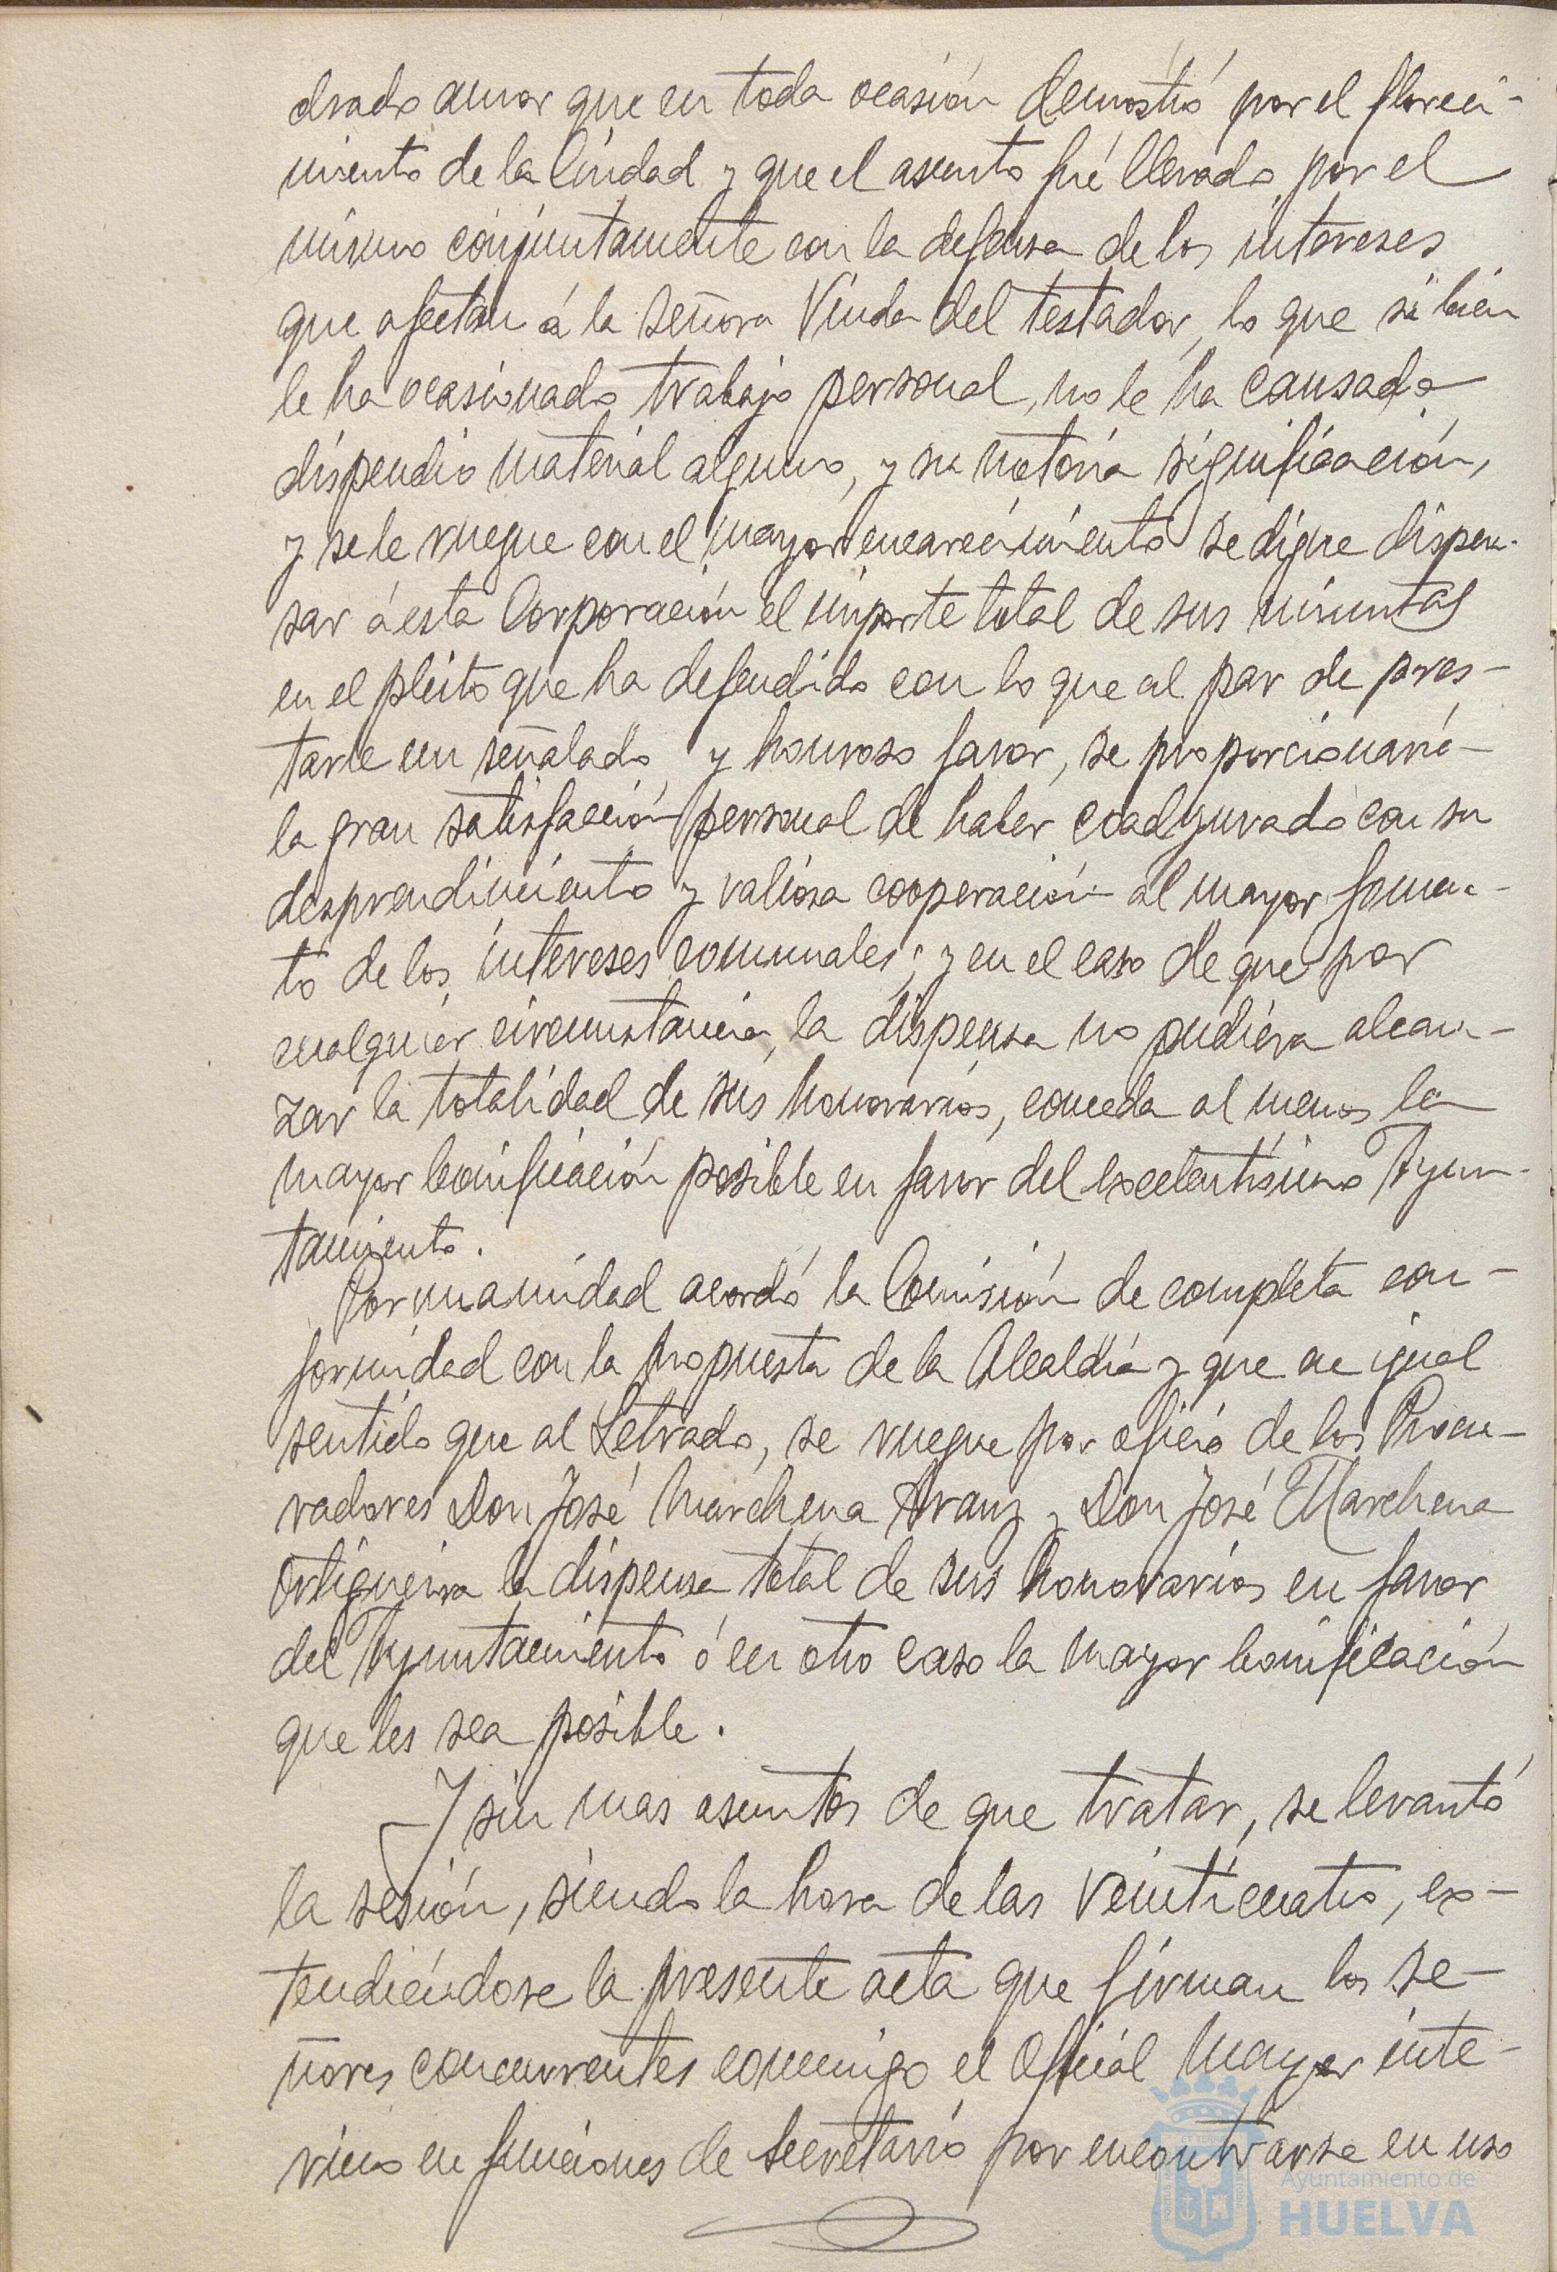 drado amor que en toda ocasión demostró por el floreci-
miento de la Ciudad y que el asunto fué llevado por el
mismo conjuntamente con la defensa de los intereses
que afectan á la señora Viuda del testador, lo que si bien
le ha ocasionado trabajo personal, no le ha causado
dispendio material alguno, y su notoria significación,
y se le ruegue con el mayor encarecimiento se digne dispen-
sar á esta Corporación el importe total de sus minutas
en el pleito que ha defendido con lo que al par de pres-
tarle un señalado y honroso favor, se proporcionaría
la gran satisfacción personal de haber coadyuvado con su
desprendimiento y valiosa cooperación al mayor fomen-
to de los intereses comunales; y en el caso de que por
cualquier circunstancia, la dispensa no pudiera alcan-
zar la totalidad de sus honorarios, conceda al menos la
mayor bonificación posible en favor del excelentísimo Ayun-
tamiento.
Por unanimidad acordó la Comisión de completa con-
formidad con la propuesta de la Alcaldía y que en igual
sentido que al Letrado, se ruegue por oficio de los Procu-
radores Don José Marchena Aranz y Don José Marchena
Ortigueira la dispensa total de sus honorarios en favor
del Ayuntamiento ó en otro caso la mayor bonificación
que les sea posible.
Y sin mas asuntos de que tratar, se levantó
la sesión, siendo la hora de las veinticuatro, ex-
tendiéndose la presente acta que firman los se-
ñores concurrentes conmigo el Oficial Mayor inte-
rino en funciones de Secretario por encontrarse en uso
Ayuntamiento de
HUELVA